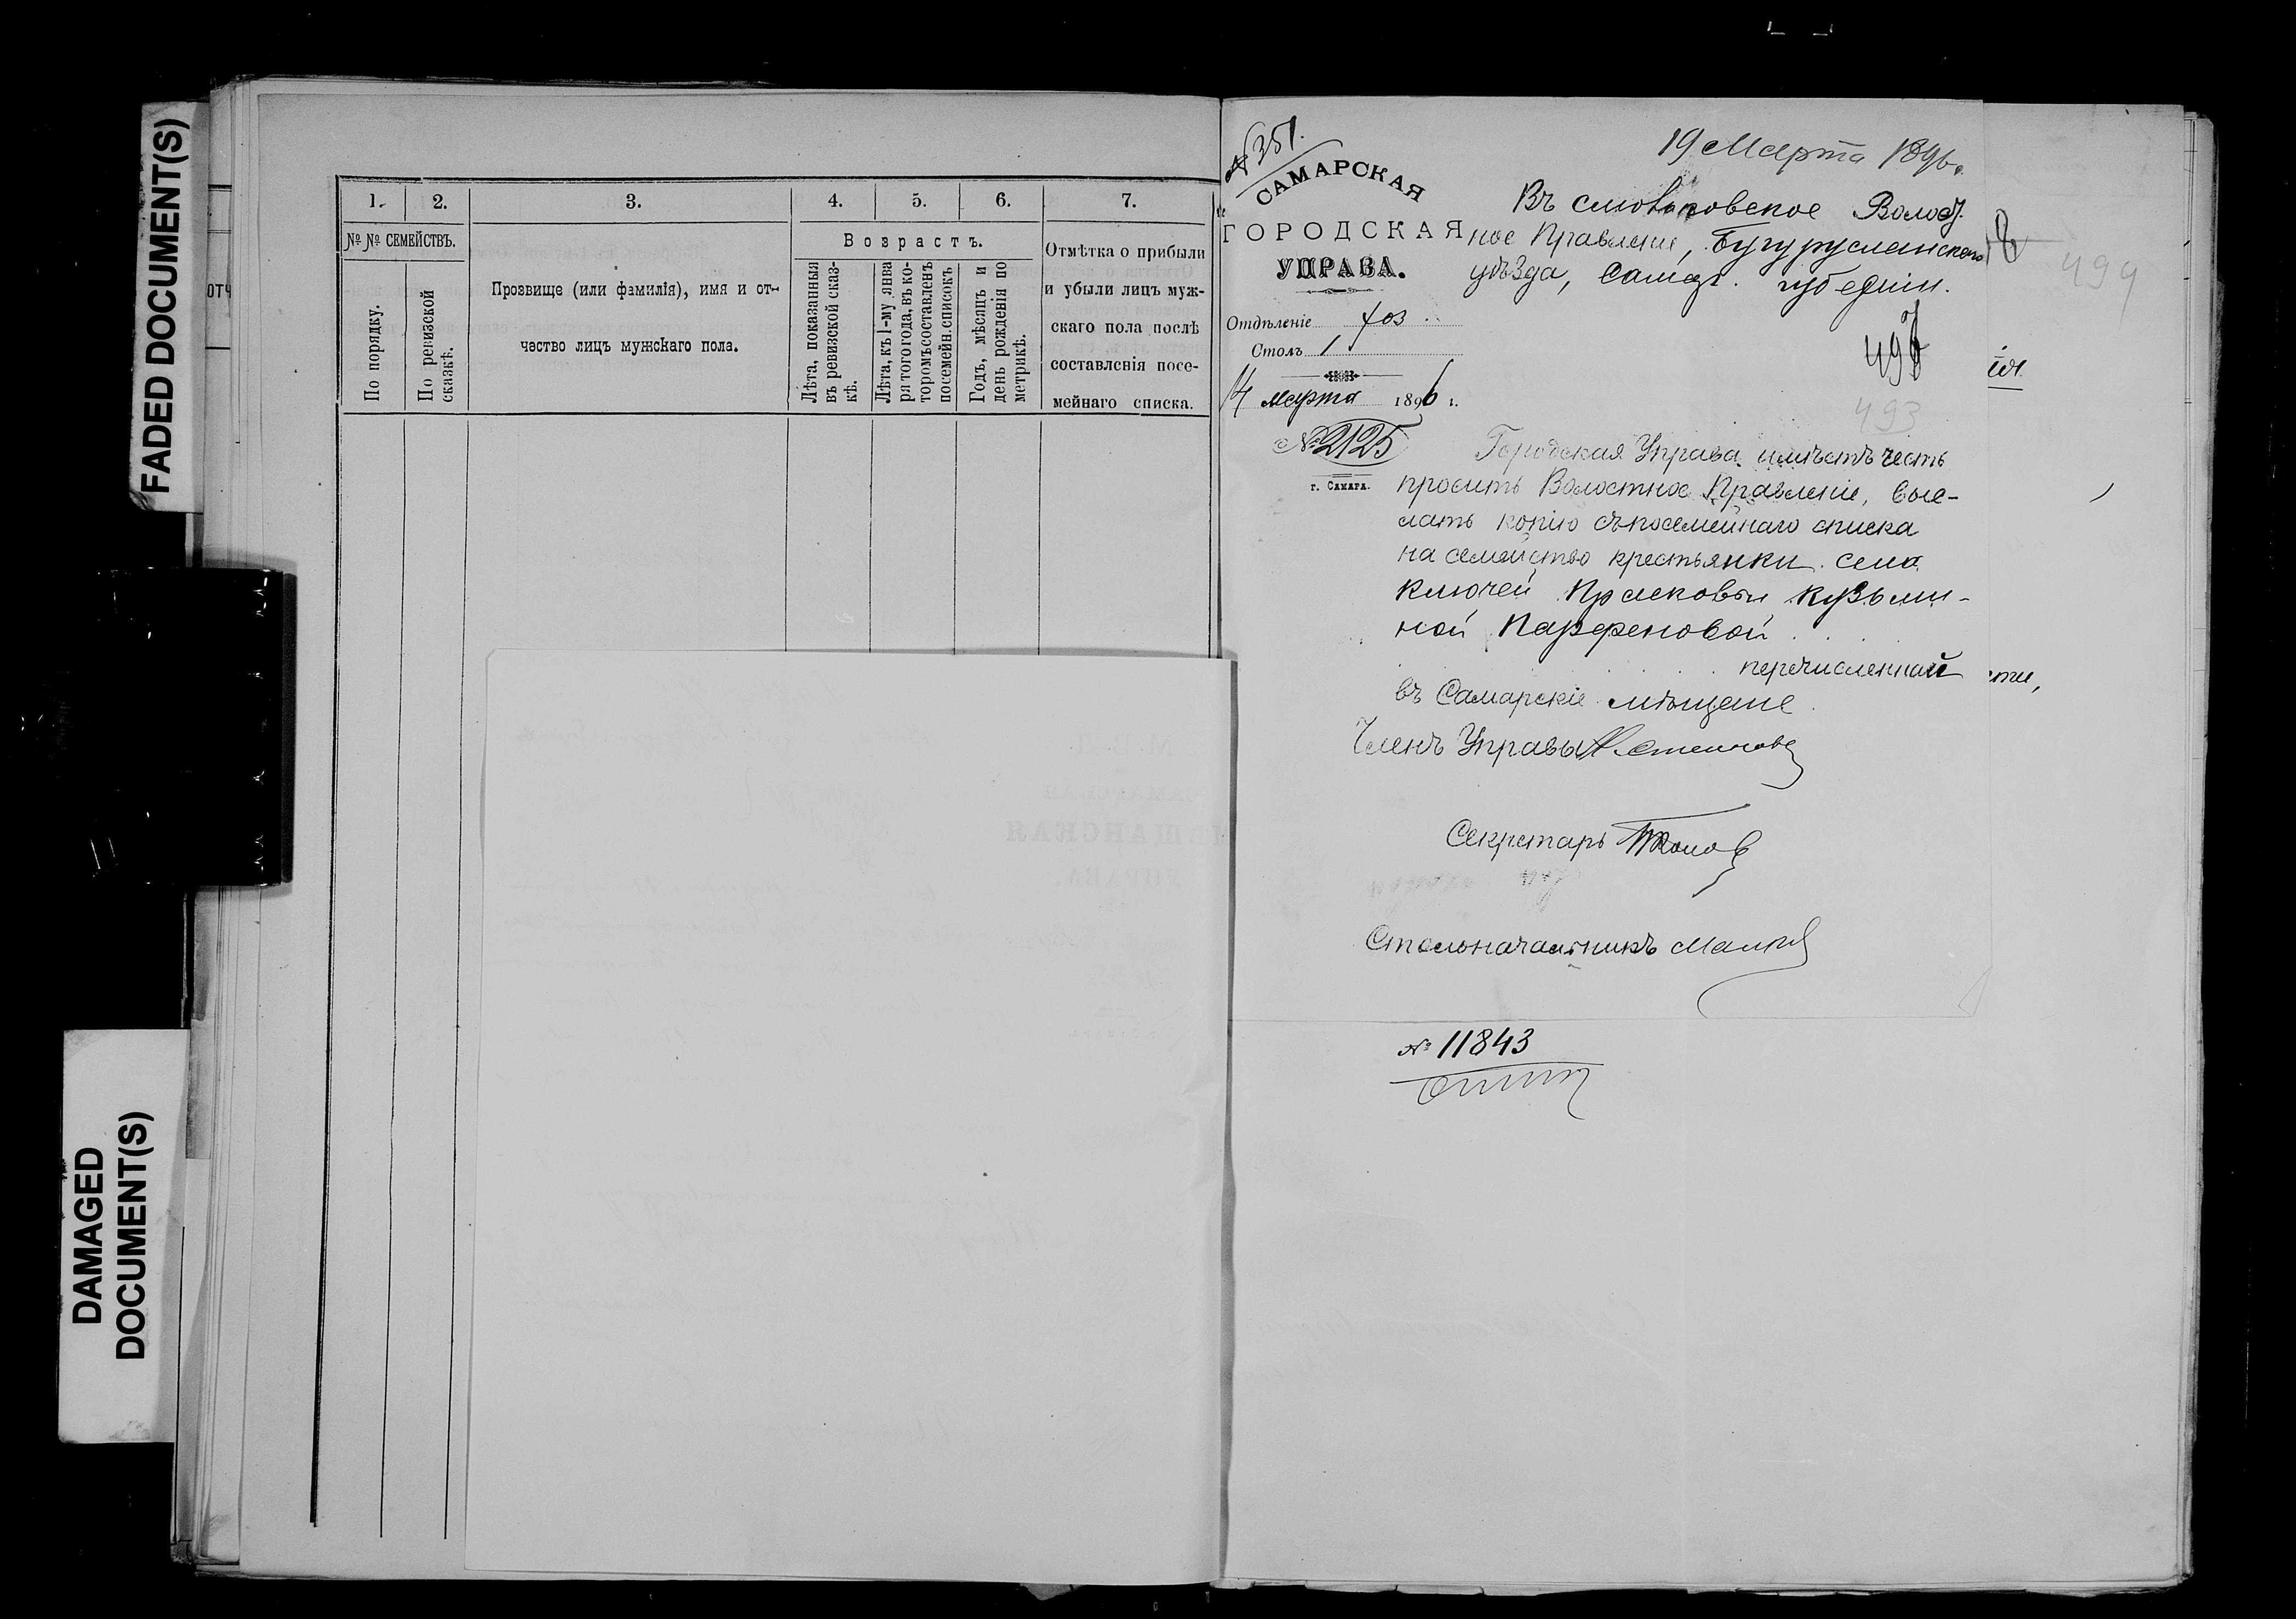 FADED DOCUMENT(S)
DAMAGED
DOCUMENT(S)
отч
1. 2. 3. 4. 5. 6. 7.
№ № СЕМЕЙСТВЪ.
По порядку.
По ревизской
сказкѣ.
Прозвище (или фамилія), имя и от-
чество лицъ мужскаго пола.
Возрастъ.
Лѣта, показанныя
въ ревизской сказ-
кѣ.
Лѣта, къ 1-му янва
ря того года, въ ко-
торомъ составленъ
посемейн. списокъ
Годъ, мѣсяцъ и
день рожденія по
метрикѣ.
Отмѣтка о прибыли
и убыли лицъ муж-
скаго пола послѣ
составленія посе-
мейнаго списка.
№ 351.
САМАРСКАЯ
ГОРОДСКАЯ
УПРАВА.
Отдѣленіе хоз
Столъ 1
14 марта 1896 г.
№ 2125
г. Самара.
19 Марта 1896 г.
Въ Волост.
ное Правленіе, Бугурусланскаго
уѣзда, Самар. губерніи.
499
493
Городская Управа имѣетъ честь
просить Волостное Правленіе, выс-
лать копію съ посемейнаго списка
на семейство крестьянки села
Ключей Прасковьи Кузьми-
ной Парфеновой
перечисленной
въ Самарскіе мѣщане
Членъ Управы
Секретарь
Столоначальникъ
№ 11843